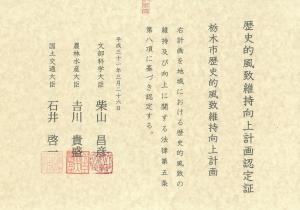 歴史的風致維持向上計画認定証
栃木市歴史的風致維持向上計画
右計画を地域における歴史的風致の
維持及び向上に関する法律第五条
第八項に基づき認定する。
平成三十一年三月二十六日
文部科学大臣 柴山 昌彦
農林水産大臣 吉川 貴盛
国土交通大臣 石井 啓一